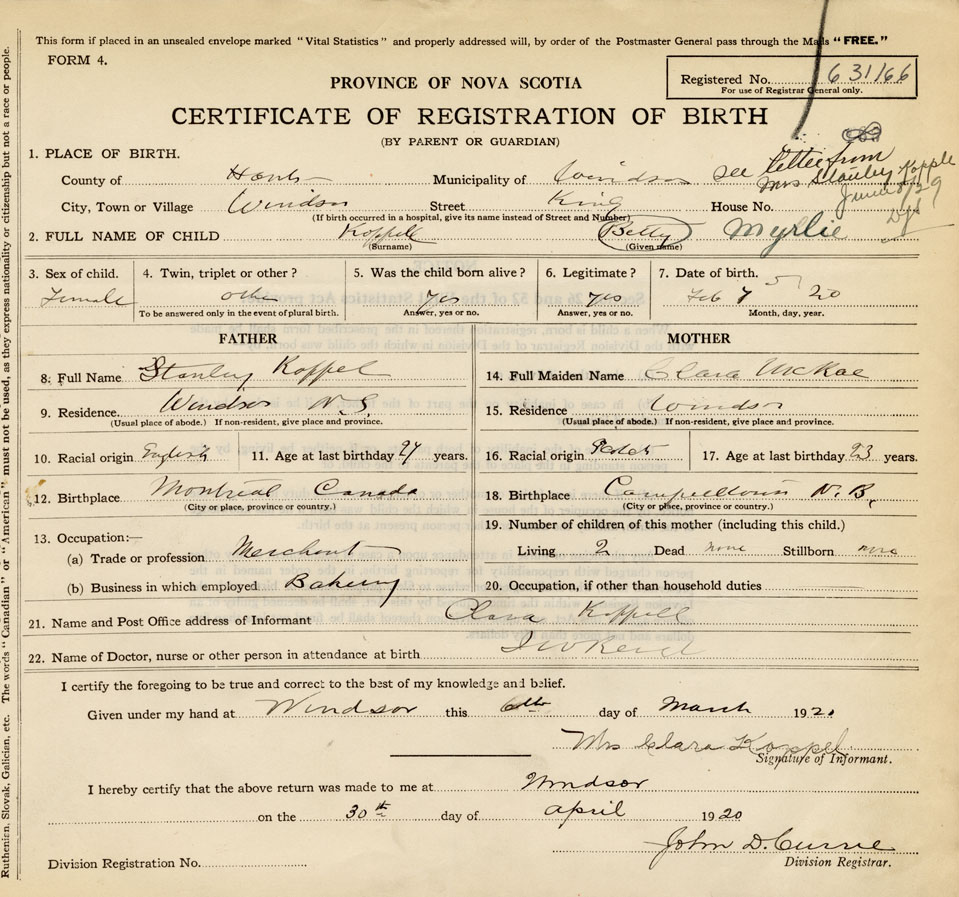 This form if placed in an unsealed envelope marked "Vital Statistics" and properly addressed will, by order of the Postmaster General pass through the Mails "FREE."
FORM 4.
PROVINCE OF NOVA SCOTIA
Registered No. 631166
For use of Registrar General only.
CERTIFICATE OF REGISTRATION OF BIRTH
(BY PARENT OR GUARDIAN)
See letter from
Mrs Stanley Kopple
June 8/29
1. PLACE OF BIRTH.
County of Hants Municipality of Windsor
City, Town or Village Windsor Street King House No.
(If birth occurred in a hospital, give its name instead of Street and Number)
2. FULL NAME OF CHILD Koppell Betty Myrlie
(Surname) (Given name)
3. Sex of child. 4. Twin, triplet or other? 5. Was the child born alive? 6. Legitimate? 7. Date of birth.
Female other Yes yes Feb 7 5 20
To be answered only in the event of plural birth. Answer, yes or no. Answer, yes or no. Month, day, year.
FATHER
8: Full Name Stanley Koppel
9. Residence. Windsor N.S.
(Usual place of abode.) If non-resident, give place and province.
10. Racial origin English 11. Age at last birthday 27 years.
12. Birthplace Montreal Canada
(City or place, province or country.)
13. Occupation:—
(a) Trade or profession Merchant
(b) Business in which employed Bakery
MOTHER
14. Full Maiden Name Clara McKae
15. Residence Windsor
(Usual place of abode.) If non-resident, give place and province.
16. Racial origin 17. Age at last birthday 23 years.
18. Birthplace Campbelltown N.B.
(City or place, province or country.)
19. Number of children of this mother (including this child.)
Living 2 Dead none Stillborn none
20. Occupation, if other than household duties
21. Name and Post Office address of Informant Clara Koppell
22. Name of Doctor, nurse or other person in attendance at birth
I certify the foregoing to be true and correct to the best of my knowledge and belief.
Given under my hand at Windsor this 6th day of March 1920
Mrs Clara Koppel
Signature of Informant.
I hereby certify that the above return was made to me at Windsor
on the 30th day of april 1920
John D. Currie
Division Registrar.
Division Registration No.
Ruthenian, Slovak, Galician, etc. The words "Canadian" or "American" must not be used, as they express nationality or citizenship but not a race or people.